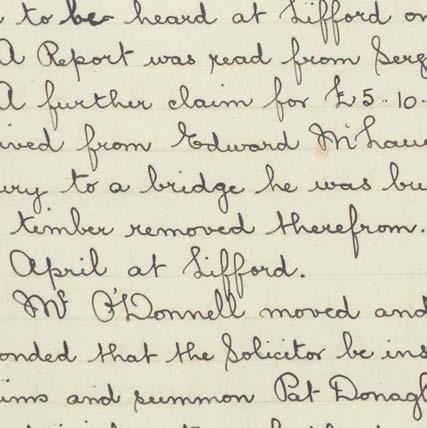 to be heard at Lifford on
A Report was read from Serg
A further claim for £5..10.
ived from Edward McLau
ury to a bridge he was bu
timber removed therefrom.
April at Lifford.
Mr O'Donnell moved and
onded that the Solicitor be ins
ims and summon Pat Donagh